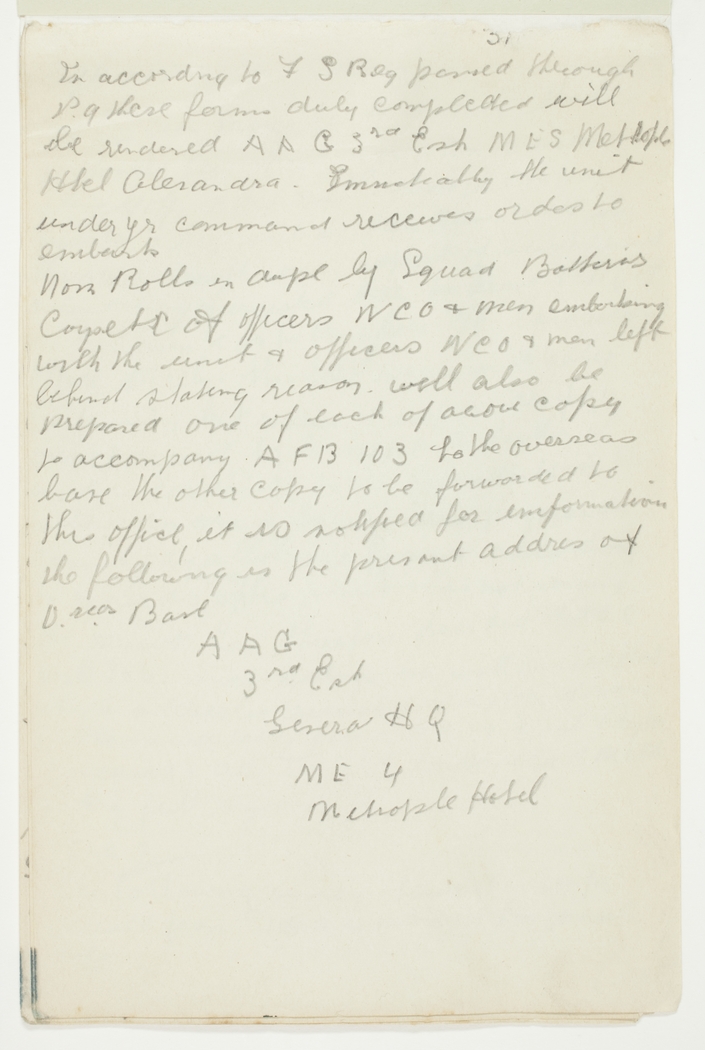 31
In accordng to F S Reg passed through
P.9 these forms duly completed will
be rendered A A G 3rd Ech M E S Metropole
Htel Alexandra. Immediatly the unit
under yr command receives orders to
embark
Nom Rolls in dupl by Squad Batteries
Coys etc of officers N C O & men embarking
with the unit & officers N C O & men left
behind stating reason. will also be
prepared one of each of above copy
to accompany A F B 103 to the overseas
base the other copy to be forwarded to
this office, it is notified for imformation
the following is the present addres of
Base
A A G
3rd Ech
General H Q
M E 4
Metrople Hotel